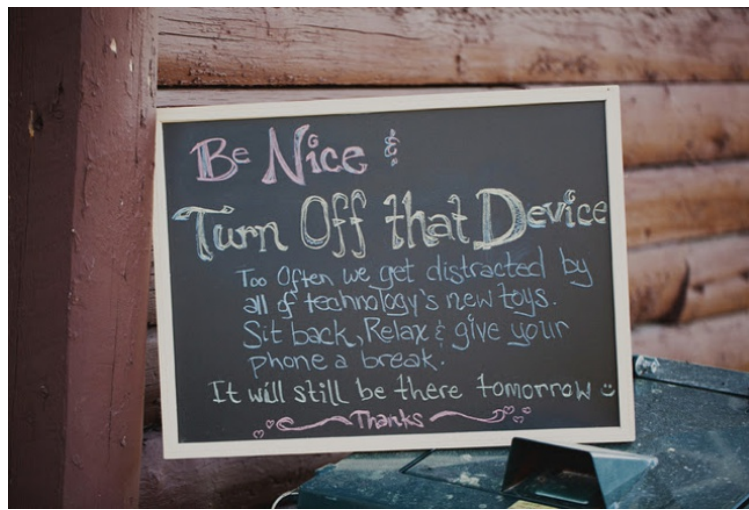 Be Nice &
Turn Off that Device
Too Often we get distracted by
all of technology's new toys.
Sit back, Relax & give your
phone a break.
It will still be there tomorrow ☺
Thanks